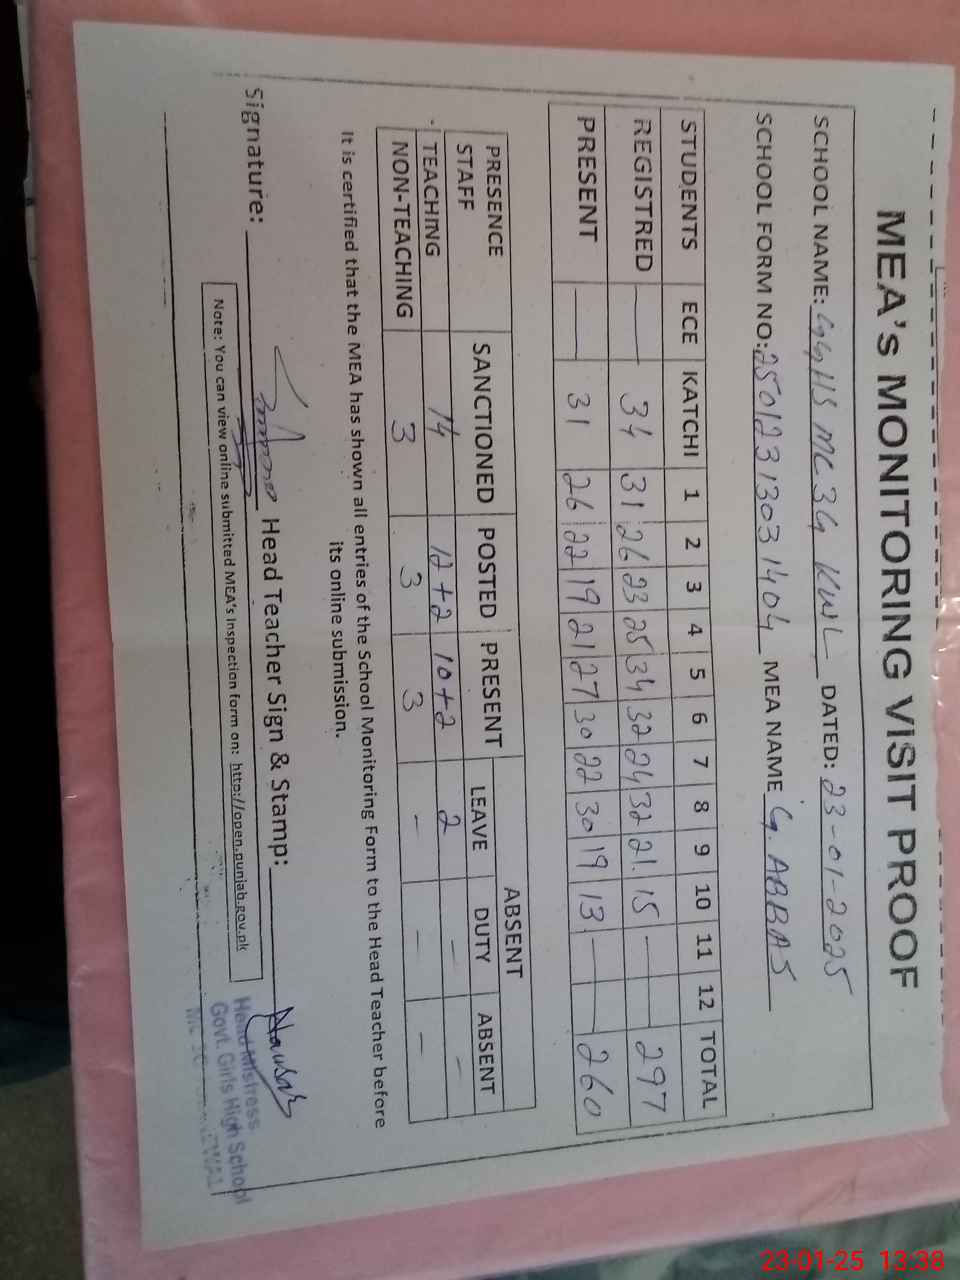 MEA's MONITORING VISIT PROOF
SCHOOL NAME: GGHS MC 3G KWL DATED: 23-01-2025
SCHOOL FORM NO: 25012313031404 MEA NAME G. ABBAS
STUDENTS ECE KATCHI 1 2 3 4 5 6 7 8 9 10 11 12 TOTAL
REGISTRED — 34 31 26 23 25 34 32 24 32 21. 15 — 297
PRESENT — 31 26 22 19 21 27 30 22 30 19 13 — 260
PRESENCE ABSENT
STAFF SANCTIONED POSTED PRESENT LEAVE DUTY ABSENT
TEACHING 14 12+2 10+2 2 - -
NON-TEACHING 3 3 3 - - -
It is certified that the MEA has shown all entries of the School Monitoring Form to the Head Teacher before
its online submission.
Signature: Head Teacher Sign & Stamp:
Note: You can view online submitted MEA's Inspection form on: http://open.punjab.gov.pk
Head Mistress
Govt. Girls High School
MC
23-01-25 13:38